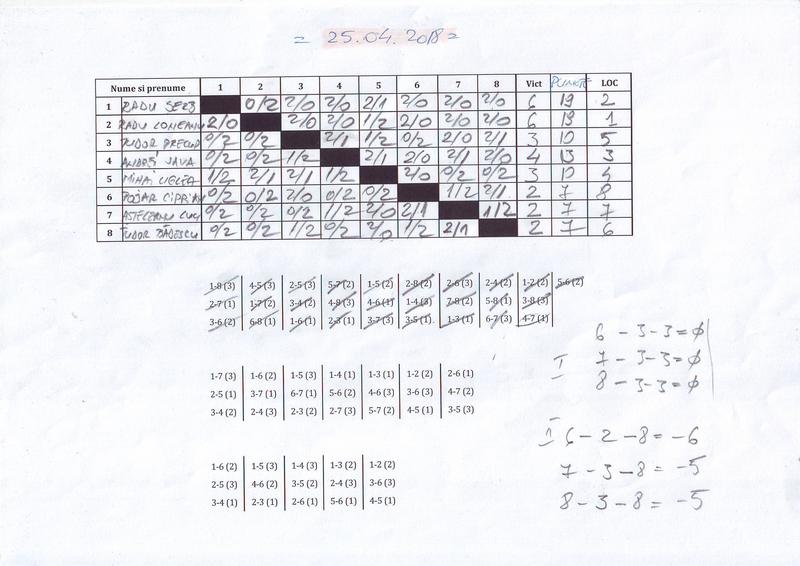 = 25.04.2018 =
Nume si prenume 1 2 3 4 5 6 7 8 Vict PUNCTE LOC
1 RADU SERB 0/2 2/0 2/0 2/1 2/0 2/0 2/0 6 19 2
2 RADU 2/0 2/0 2/0 1/2 2/0 2/0 2/0 6 19 1
3 TUDOR 0/2 0/2 2/1 1/2 0/2 2/0 2/1 3 10 5
4 ANDREI JAVA 0/2 0/2 1/2 2/1 2/0 2/1 2/0 4 13 3
5 MIHAI 1/2 2/1 2/1 1/2 2/0 0/2 0/2 3 10 4
6 CIPRIAN 0/2 0/2 2/0 0/2 0/2 1/2 2/1 2 7 8
7 0/2 0/2 0/2 1/2 2/0 2/1 1/2 2 7 7
8 TUDOR BĂDESCU 0/2 0/2 1/2 0/2 2/0 1/2 2/1 2 7 6
1-8 (3) 4-5 (3) 2-5 (3) 5-7 (2) 1-5 (2) 2-8 (2) 2-6 (3) 2-4 (2) 1-2 (2) 5-6 (2)
2-7 (1) 1-7 (2) 3-4 (2) 4-8 (3) 4-6 (1) 1-4 (3) 7-8 (2) 5-8 (1) 3-8 (3)
3-6 (2) 6-8 (1) 1-6 (1) 2-3 (1) 3-7 (3) 3-5 (1) 1-3 (1) 6-7 (3) 4-7 (1)
6 - 3 - 3 = ϕ
I 7 - 3 - 3 = ϕ
8 - 3 - 3 = ϕ
1-7 (3) 1-6 (2) 1-5 (3) 1-4 (1) 1-3 (1) 1-2 (2) 2-6 (1)
2-5 (1) 3-7 (1) 6-7 (1) 5-6 (2) 4-6 (3) 3-6 (3) 4-7 (2)
3-4 (2) 2-4 (3) 2-3 (2) 2-7 (3) 5-7 (2) 4-5 (1) 3-5 (3)
6 - 2 - 8 = -6
7 - 3 - 8 = -5
8 - 3 - 8 = -5
1-6 (2) 1-5 (3) 1-4 (3) 1-3 (2) 1-2 (2)
2-5 (3) 4-6 (2) 3-5 (2) 2-4 (3) 3-6 (3)
3-4 (1) 2-3 (1) 2-6 (1) 5-6 (1) 4-5 (1)